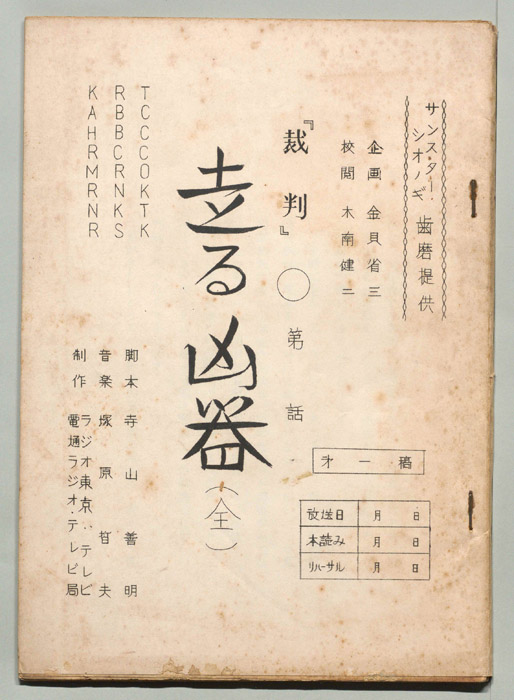 サンスター・シオノギ 歯磨提供
企画 金貝省三
校閲 木南健二
『裁判』○第 話
走る凶器(全)
TCCCOKTK
RBBCRNKS
KAHRMRNR
才一稿
放送日 月 日
本読み 月 日
リハーサル 月 日
脚本 寺山善明
音楽 塚原晢夫
制作 ラジオ東京・テレビ
電通ラジオ・テレビ局